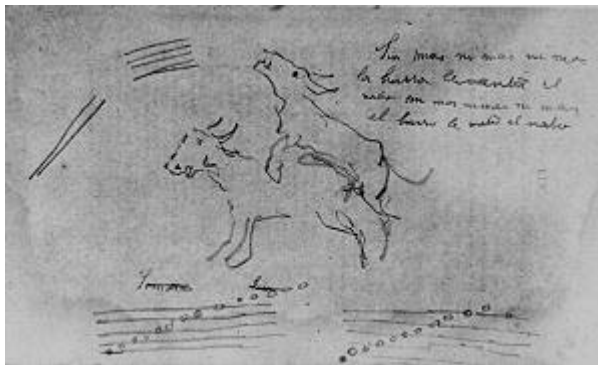 Sin mas ni mas ni mas
la burra levanta el
rabo sin mas ni mas ni mas
el burro le metió el nabo